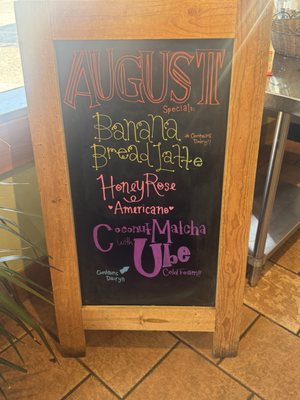 AUGUST
Specials:
Banana
Bread Latte
* Contains
Dairy!!
HoneyRose
Americano
Coconut Matcha
with Ube
Cold Foam
Contains
Dairy!!